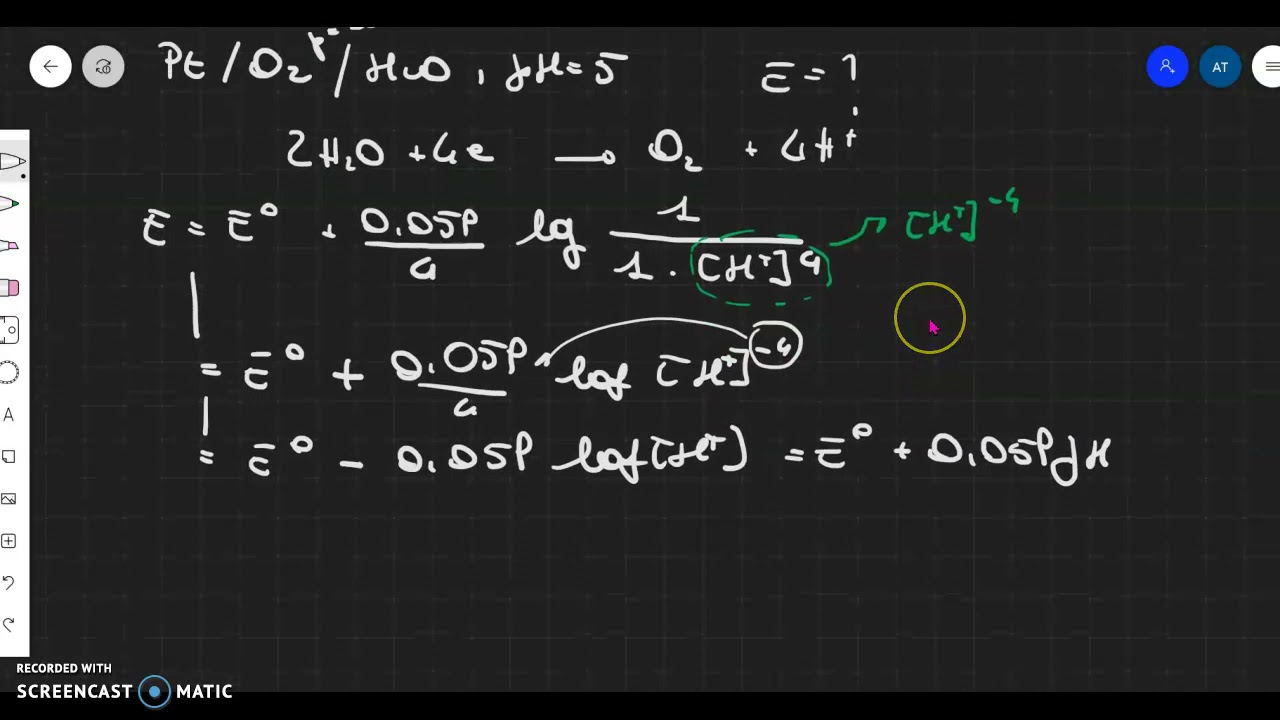 Pt / O2 / H2O , pH = 5 E = ?
2H2O + 4e → O2 + 4H+
E = E0 + 0.059 / 4 lg 1 / 1 · [H+]4 → [H+]-4
= E0 + 0.059 / 4 log [H+]-4
= E0 - 0.059 log [H+] = E0 + 0.059 pH
AT
A
RECORDED WITH
SCREENCAST MATIC